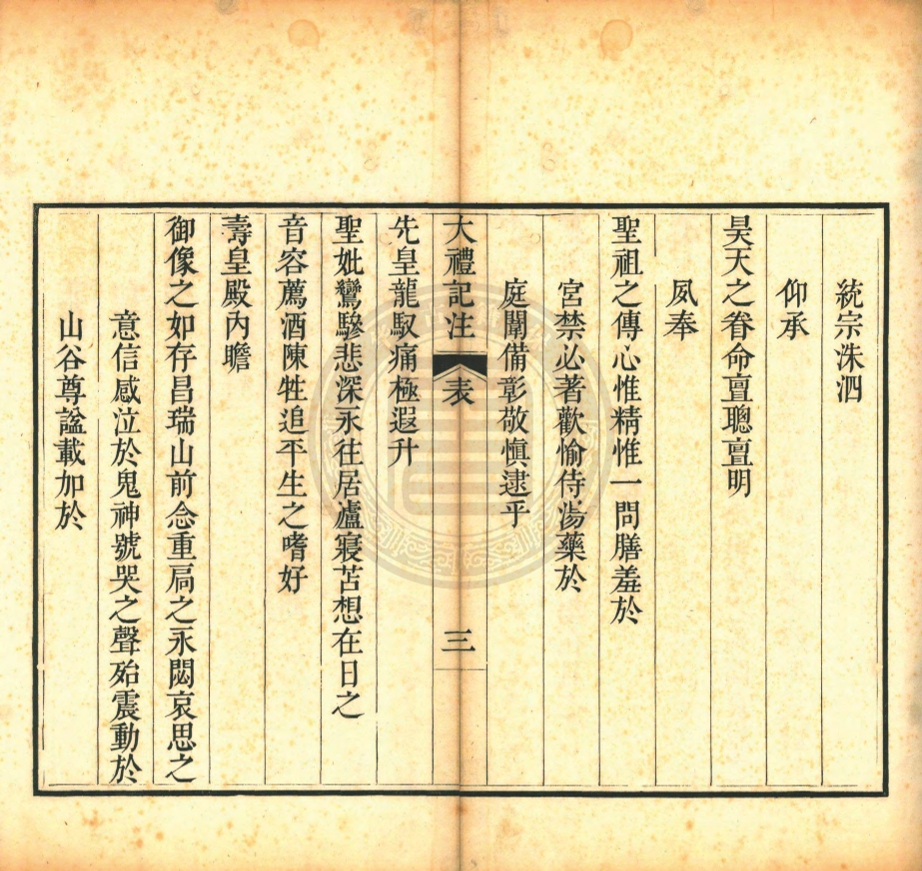 統宗洙泗
仰承
昊天之眷命亶聰亶明
夙奉
聖祖之傳心惟精惟一問膳羞於
宮禁必著歡愉侍湯藥於
庭闈備彰敬慎逮乎
大禮記注 表 三
先皇龍馭痛極遐升
聖妣鸞驂悲深永往居廬寢苫想在日之
音容薦酒陳牲追平生之嗜好
壽皇殿內瞻
御像之如存昌瑞山前念重扃之永閟哀思之
意信感泣於鬼神號哭之聲殆震動於
山谷尊諡載加於